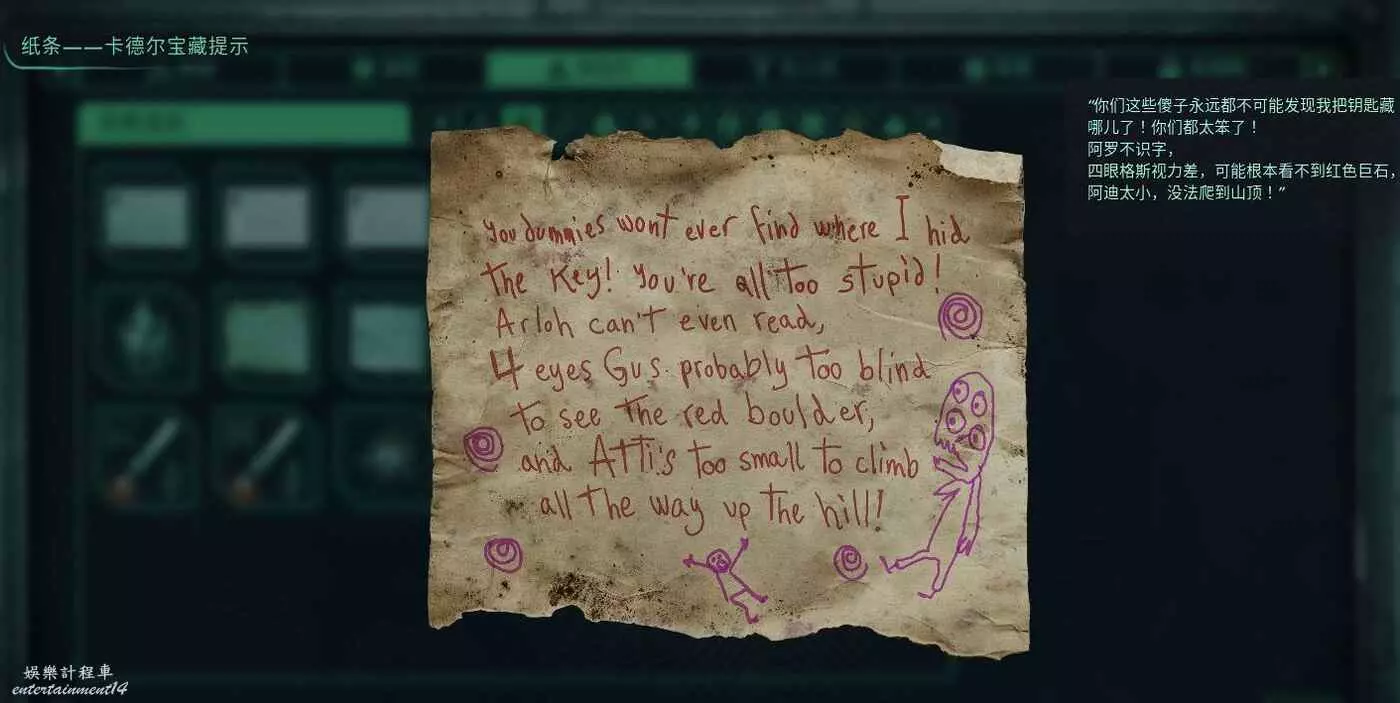 纸条——卡德尔宝藏提示
“你们这些傻子永远都不可能发现我把钥匙藏
哪儿了！你们都太笨了！
阿罗不识字，
四眼格斯视力差，可能根本看不到红色巨石，
阿迪太小，没法爬到山顶！”
you dummies wont ever find where I hid
the key! you're all too stupid!
Arloh can't even read,
4 eyes Gus probably too blind
to see the red boulder,
and Atti's too small to climb
all the way up the hill!
娛樂計程車
entertainment14